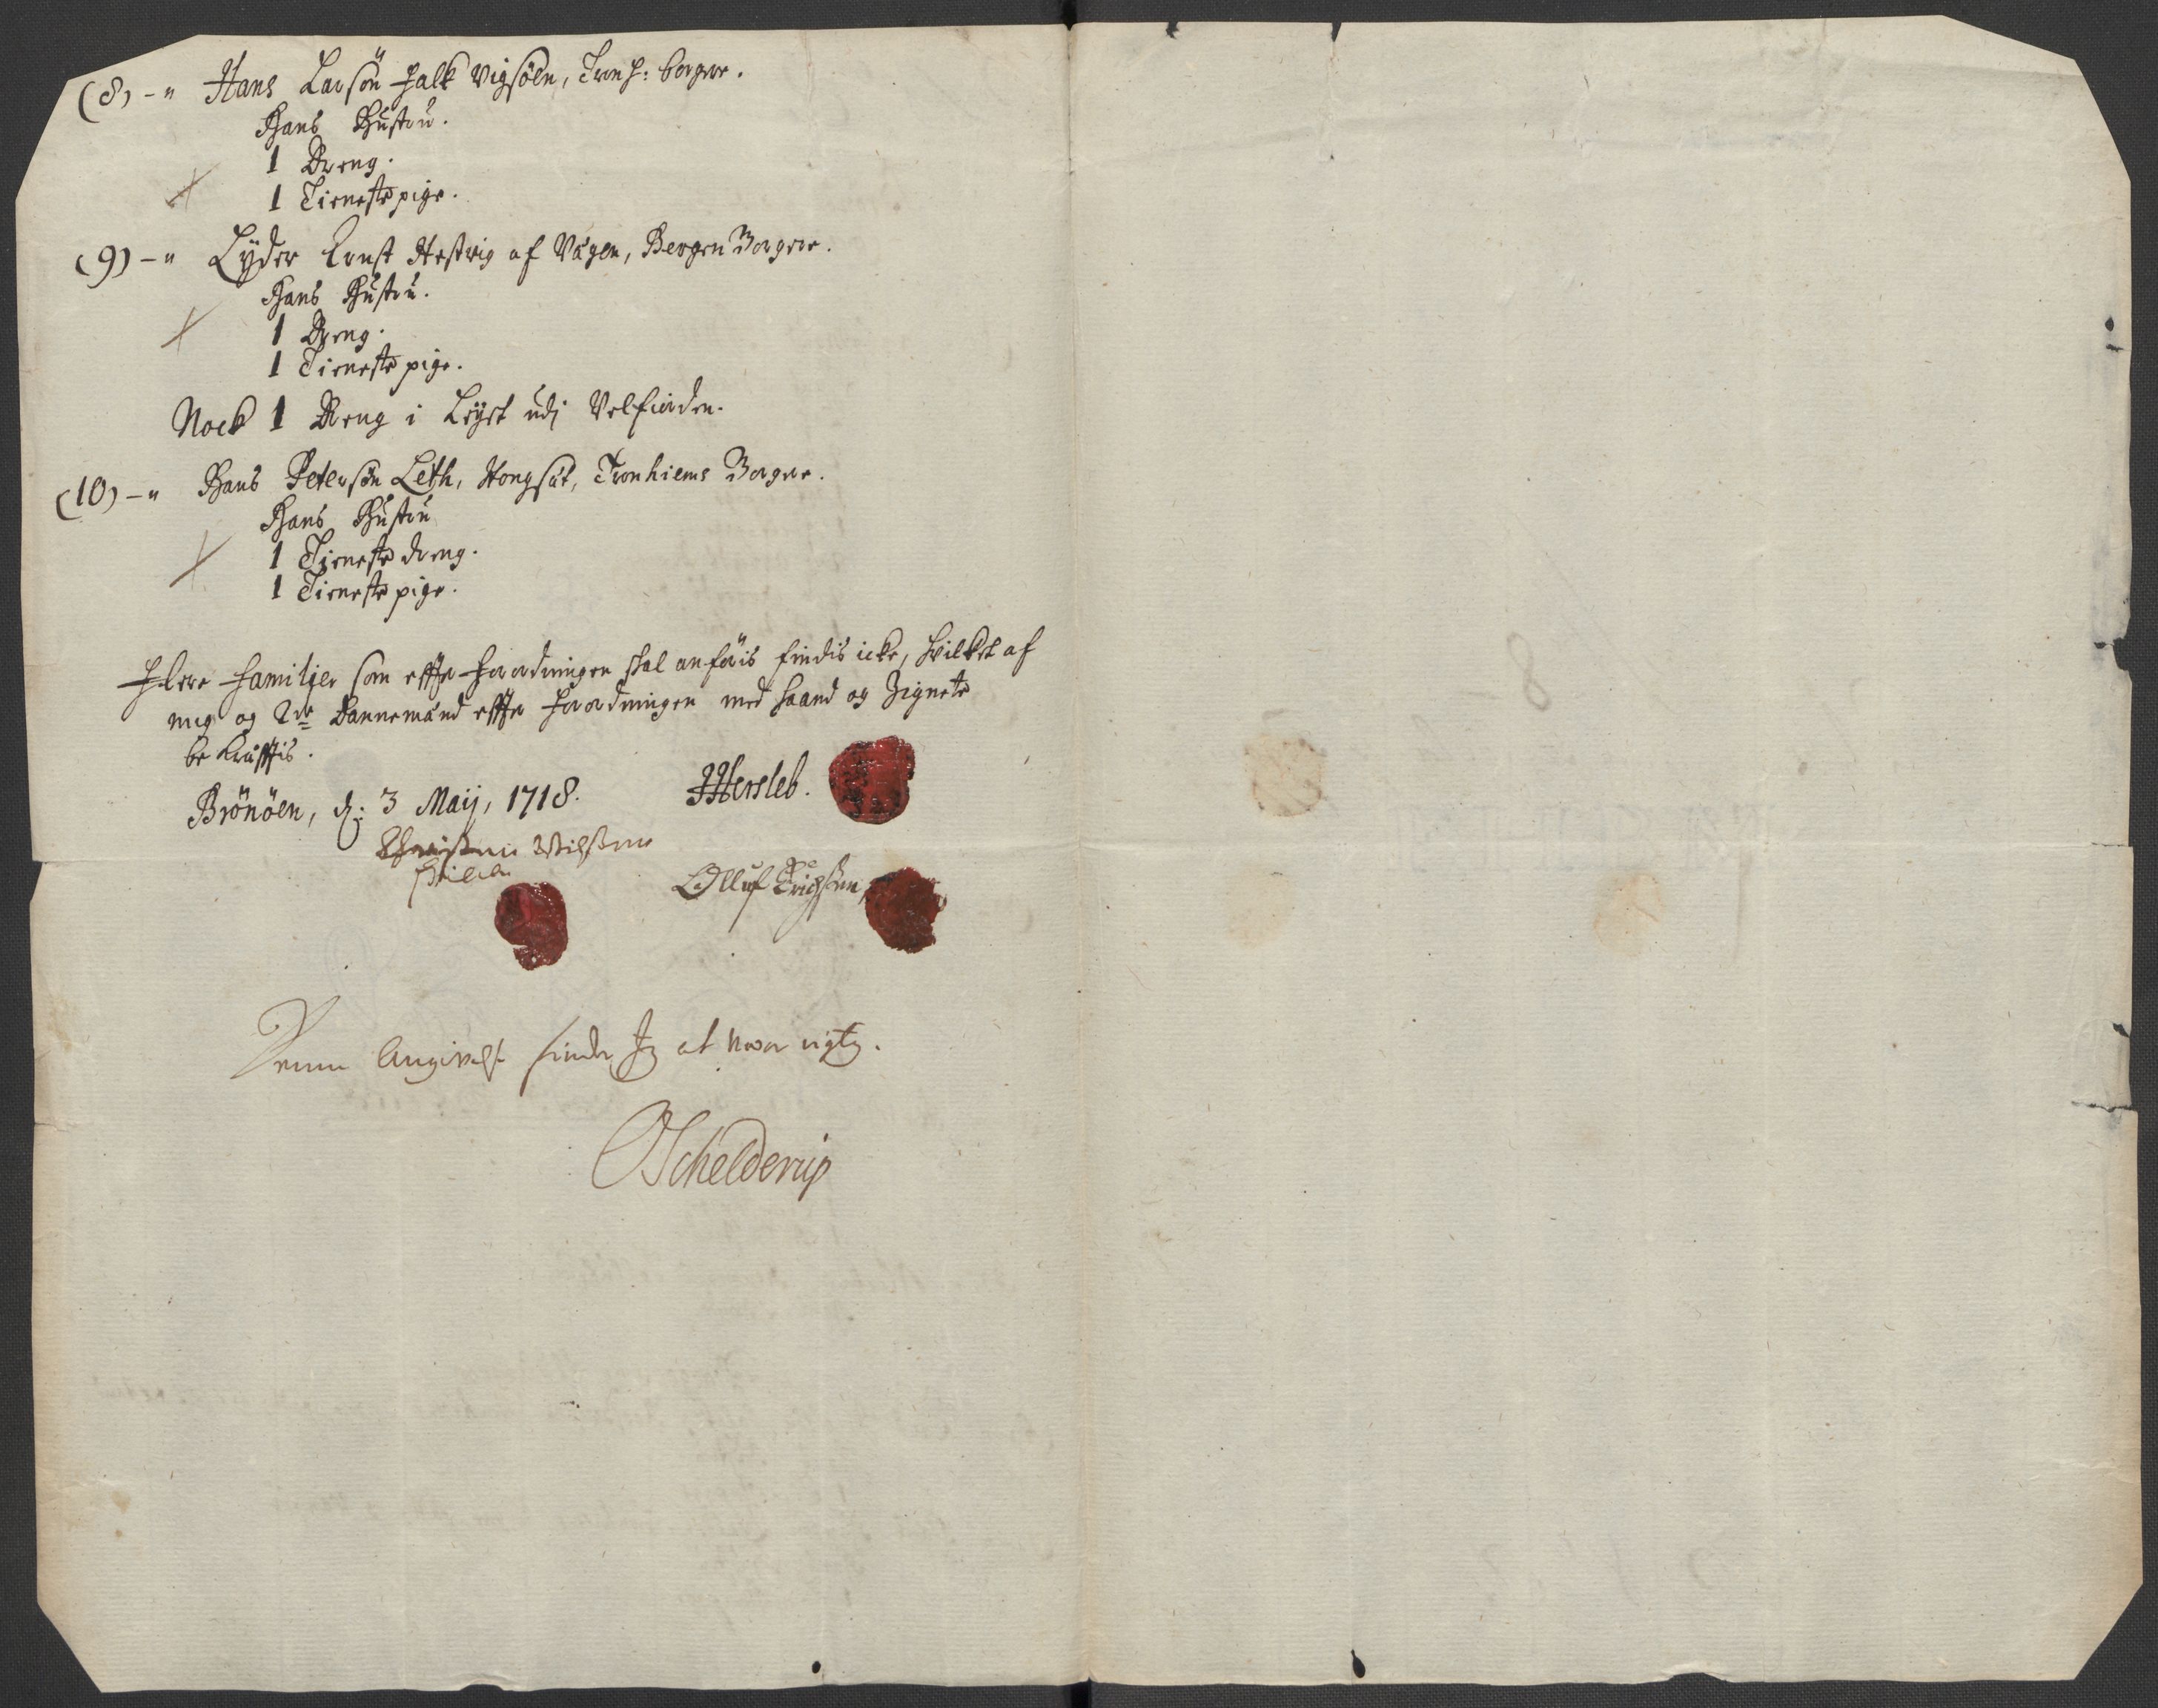 (8) -" Hans Larsön Falk Vigsöen, Tronh: borger.
Hans Hustru.
1 Dreng.
1 Tienestepige.
(9) -" Lyder Ernst Hestvig af Vågen, Bergen Borgere.
Hans Hustru.
1 Dreng.
1 Tienestepige.
Nock 1 Dreng i Leyet udj Velfiorden.
(10) -" Hans Petersön Leth, Tronhiems Borger.
Hans Hustru
1 Tieneste dreng.
1 Tienestepige.
Flere Familjer som effter Forordningen skal anföris findis icke, hvilket af
mig og 2de Dannemænd effter Forordningen med haand og Zignete
bekräfftis.
Brönöen, d: 3 Maij, 1718. Hersleb.
Olluf Erichsen
Denne Angivelse finder Jeg at were rigtig.
Schelderup
8